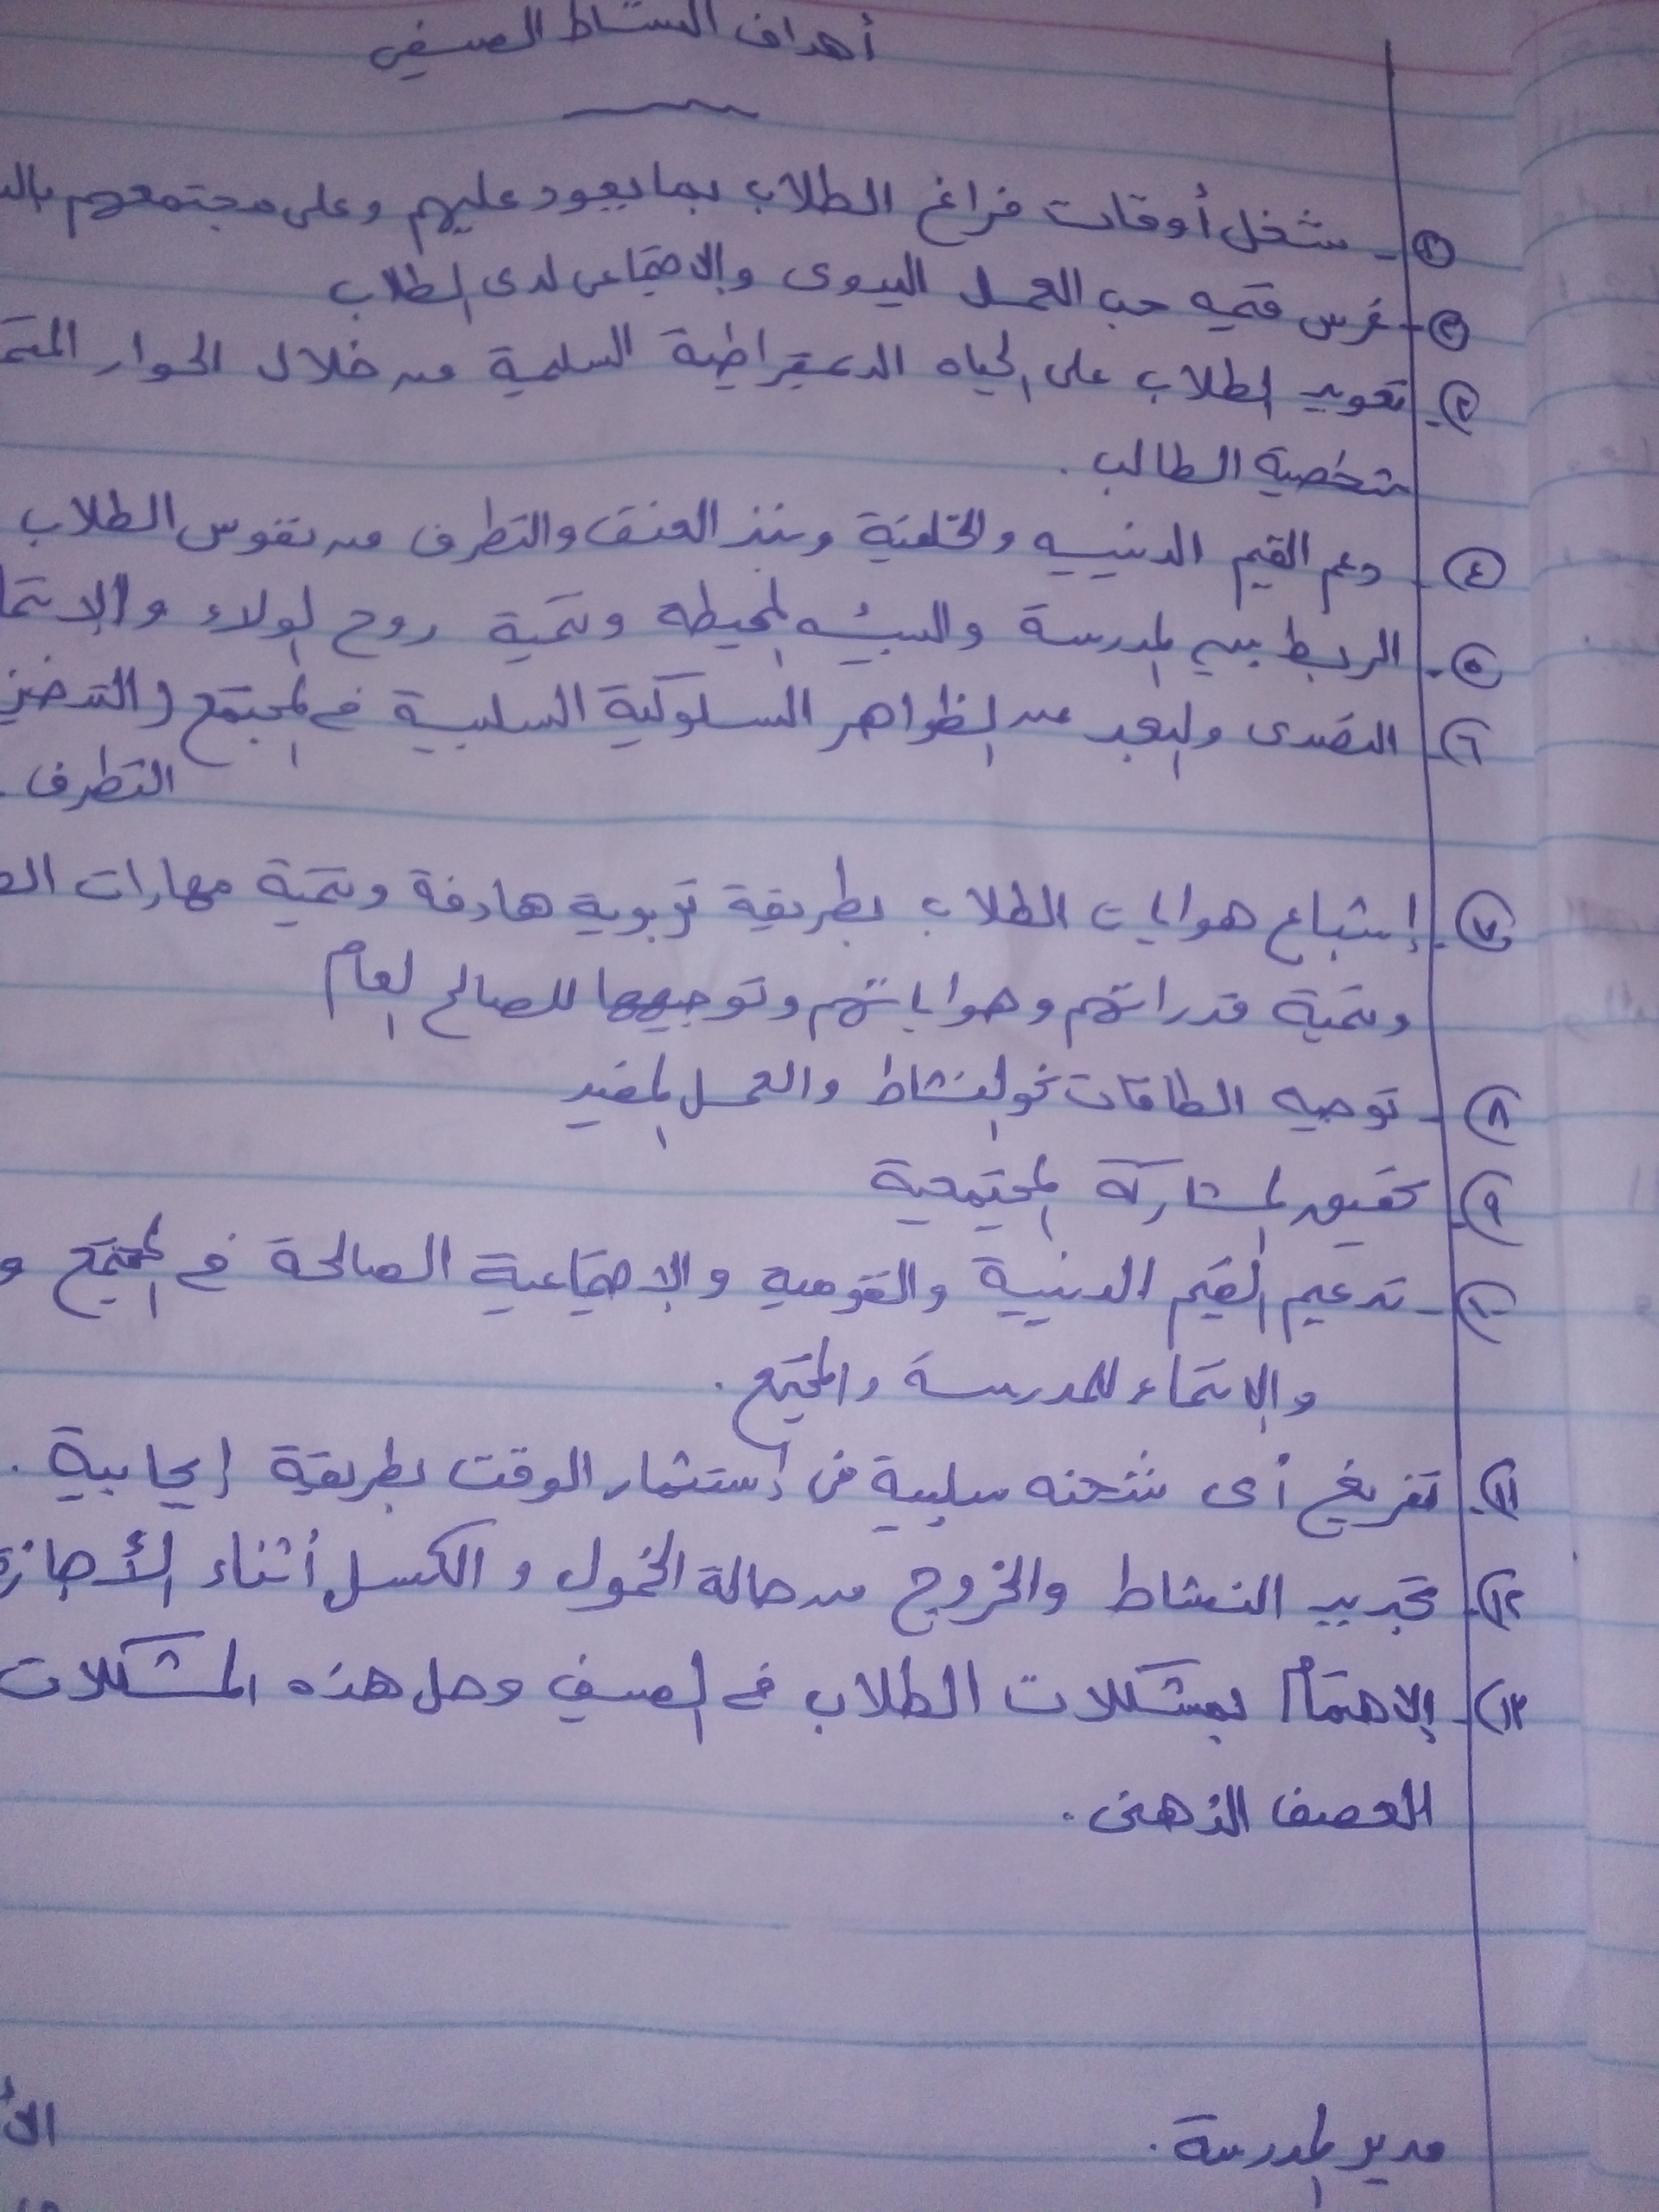 أهداف النشاط الصيفي
١- شغل أوقات فراغ الطلاب بما يعود عليهم وعلى مجتمعهم
٢- غرس قيمه حب العمل اليدوى والإجتماعى لدى الطلاب
٣- تعويد الطلاب على الحياه الديمقراطية السليمة من خلال الحوار
شخصية الطالب .
٤- دعم القيم الدينيه والخلقية ونبذ العنف والتطرف من نفوس الطلاب
٥- الربط بين المدرسة والبيئه المحيطه وتنمية روح الولاء
٦- التصدى والبعد عن الظواهر السلوكية السلبية فى المجتمع (
التطرف .
٧- إشباع هوايات الطلاب بطريقة تربوية هادفة وتنمية مهارات
وتنمية قدراتهم وهواياتهم وتوجيهها للصالح العام
٨- توجيه الطاقات نحو النشاط والعمل المفيد
٩- تحقيق المشاركة المجتمعية
١٠- تدعيم القيم الدينية والقومية والإجتماعية الصالحة فى المجتمع و
والإنتماء للمدرسة والمجتمع .
١١- تفريغ أى شحنه سلبية فى إستثمار الوقت بطريقة إيجابية .
١٢- تجديد النشاط والخروج من حالة الخمول والكسل أثناء الأجازة
١٣- الإهتمام بمشكلات الطلاب فى الصيف وحل هذه المشكلات
العصف الذهنى .
مدير المدرسة .